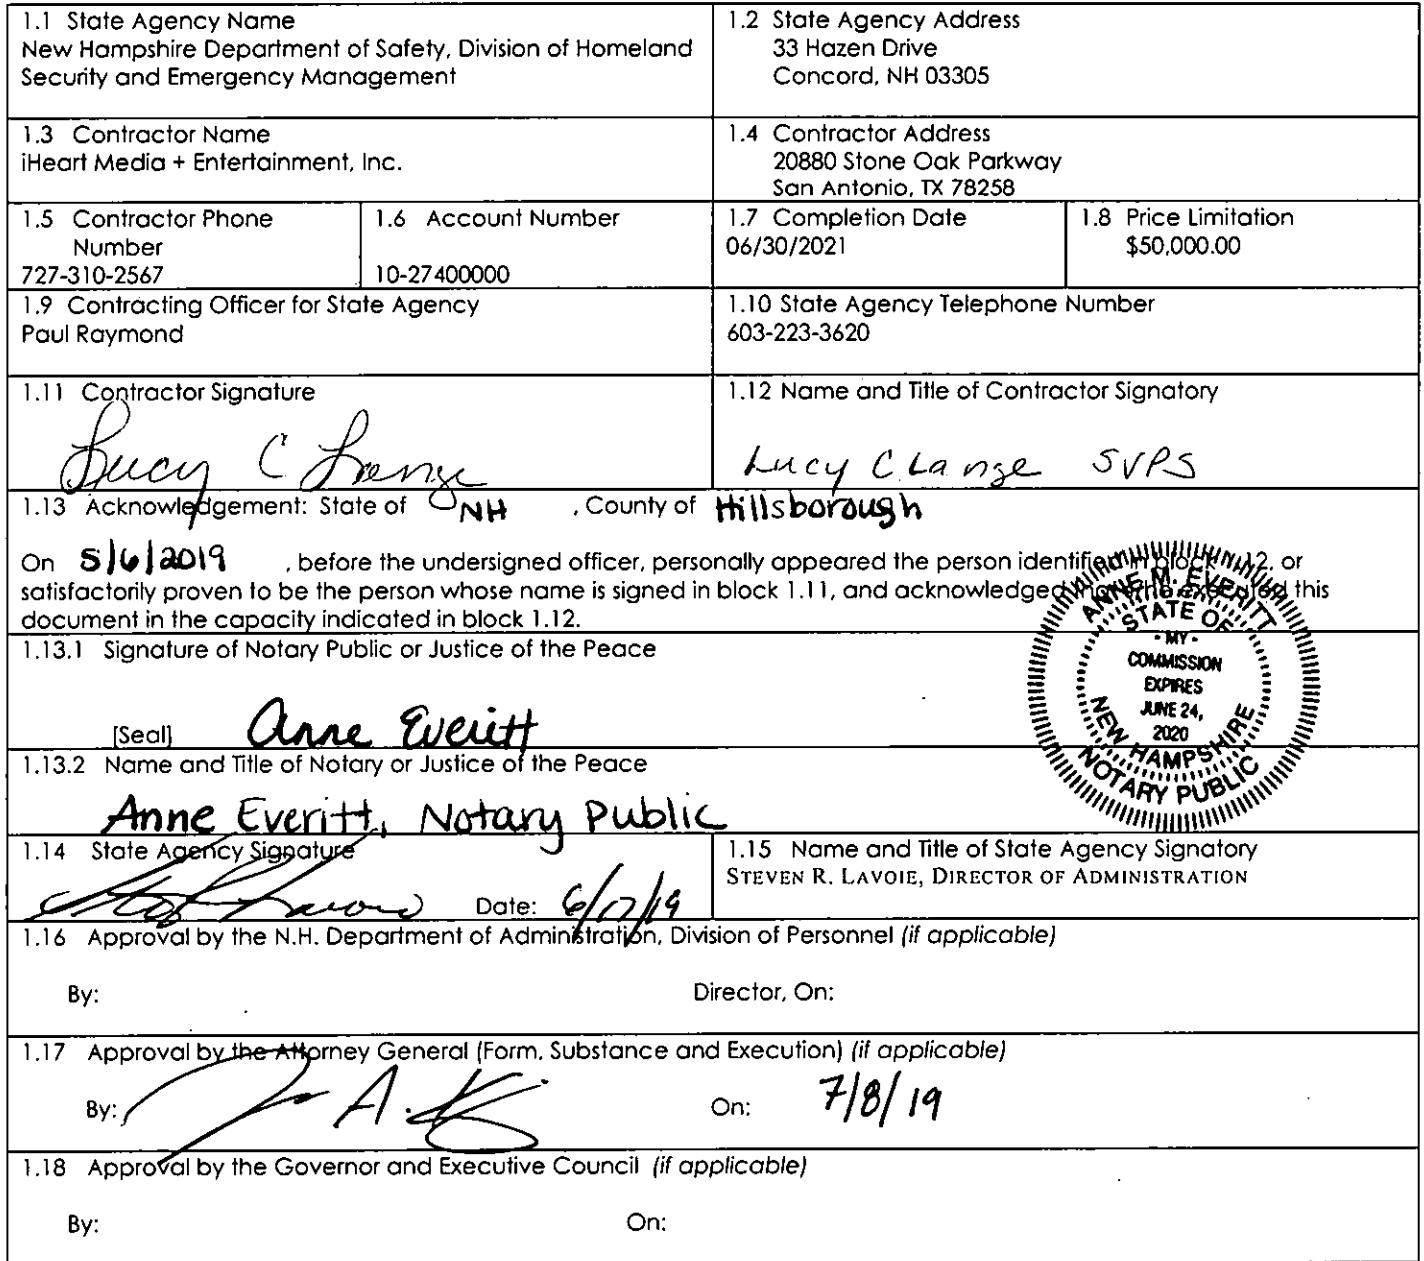 1.1 State Agency Name
New Hampshire Department of Safety, Division of Homeland
Security and Emergency Management
1.2 State Agency Address
33 Hazen Drive
Concord, NH 03305
1.3 Contractor Name
iHeart Media + Entertainment, Inc.
1.4 Contractor Address
20880 Stone Oak Parkway
San Antonio, TX 78258
1.5 Contractor Phone
Number
727-310-2567
1.6 Account Number
10-27400000
1.7 Completion Date
06/30/2021
1.8 Price Limitation
$50,000.00
1.9 Contracting Officer for State Agency
Paul Raymond
1.10 State Agency Telephone Number
603-223-3620
1.11 Contractor Signature
Lucy C Lange
1.12 Name and Title of Contractor Signatory
Lucy C Lange SVPS
1.13 Acknowledgement: State of NH , County of Hillsborough
On 5/6/2019 , before the undersigned officer, personally appeared the person identified in block 1.12, or
satisfactorily proven to be the person whose name is signed in block 1.11, and acknowledged executed this
document in the capacity indicated in block 1.12.
1.13.1 Signature of Notary Public or Justice of the Peace
[Seal] Anne Everitt
ANNE M. EVERITT
STATE OF
- MY -
COMMISSION
EXPIRES
JUNE 24,
2020
NEW HAMPSHIRE
NOTARY PUBLIC
1.13.2 Name and Title of Notary or Justice of the Peace
Anne Everitt, Notary Public
1.14 State Agency Signature
Date: 6/17/19
1.15 Name and Title of State Agency Signatory
STEVEN R. LAVOIE, DIRECTOR OF ADMINISTRATION
1.16 Approval by the N.H. Department of Administration, Division of Personnel (if applicable)
By: Director, On:
1.17 Approval by the Attorney General (Form, Substance and Execution) (if applicable)
By: On: 7/8/19
1.18 Approval by the Governor and Executive Council (if applicable)
By: On: